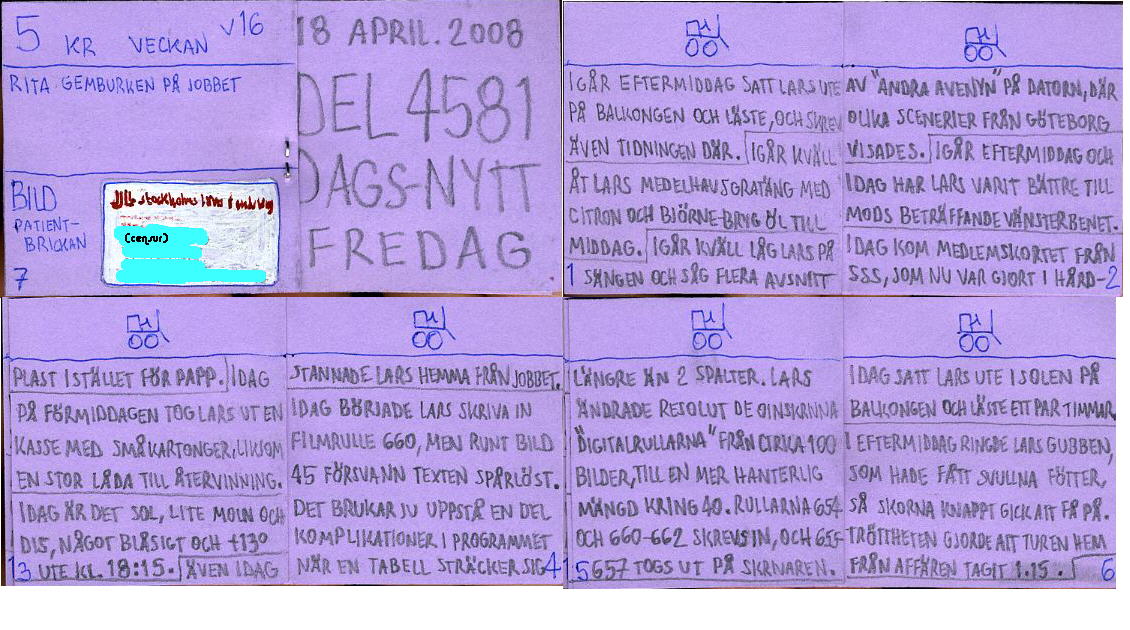 5 KR VECKAN v16
RITA GEMBURKEN PÅ JOBBET
BILD
PATIENT-
BRICKAN
7
JLL stockholms läns landsting
(censur)
18 APRIL. 2008
DEL 4581
DAGS-NYTT
FREDAG
IGÅR EFTERMIDDAG SATT LARS UTE
PÅ BALKONGEN OCH LÄSTE, OCH SKREV
ÄVEN TIDNINGEN DÄR. IGÅR KVÄLL
ÅT LARS MEDELHAVSGRATÄNG MED
CITRON OCH BJÖRNE-BRYG ÖL TILL
MIDDAG. IGÅR KVÄLL LÅG LARS PÅ
1 SÄNGEN OCH SÅG FLERA AVSNITT
AV "ANDRA AVENYN" PÅ DATORN, DÄR
OLIKA SCENERIER FRÅN GÖTEBORG
VISADES. IGÅR EFTERMIDDAG OCH
IDAG HAR LARS VARIT BÄTTRE TILL
MODS BETRÄFFANDE VÄNSTERBENET.
IDAG KOM MEDLEMSKORTET FRÅN
SSS, SOM NU VAR GJORT I HÅRD- 2
PLAST ISTÄLLET FÖR PAPP. IDAG
PÅ FÖRMIDDAGEN TOG LARS UT EN
KASSE MED SMÅKARTONGER, LIKSOM
EN STOR LÅDA TILL ÅTERVINNING.
IDAG ÄR DET SOL, LITE MOLN OCH
DIS, NÅGOT BLÅSIGT OCH +13°
3 UTE KL. 18:15. ÄVEN IDAG
STANNADE LARS HEMMA FRÅN JOBBET.
IDAG BÖRJADE LARS SKRIVA IN
FILMRULLE 660, MEN RUNT BILD
45 FÖRSVANN TEXTEN SPÅRLÖST.
DET BRUKAR JU UPPSTÅ EN DEL
KOMPLIKATIONER I PROGRAMMET
NÄR EN TABELL STRÄCKER SIG 4
LÄNGRE ÄN 2 SPALTER. LARS
ÄNDRADE RESOLUT DE OINSKRIVNA
"DIGITALRULLARNA" FRÅN CIRKA 100
BILDER, TILL EN MER HANTERLIG
MÄNGD KRING 40. RULLARNA 654
OCH 660-662 SKREVS IN, OCH 655-
5 657 TOGS UT PÅ SKRIVAREN.
IDAG SATT LARS UTE I SOLEN PÅ
BALKONGEN OCH LÄSTE ETT PAR TIMMAR.
I EFTERMIDDAG RINGDE LARS GUBBEN,
SOM HADE FÅTT SVULLNA FÖTTER,
SÅ SKORNA KNAPPT GICK ATT FÅ PÅ.
TRÖTTHETEN GJORDE ATT TUREN HEM
FRÅN AFFÄREN TAGIT 1.15. 6